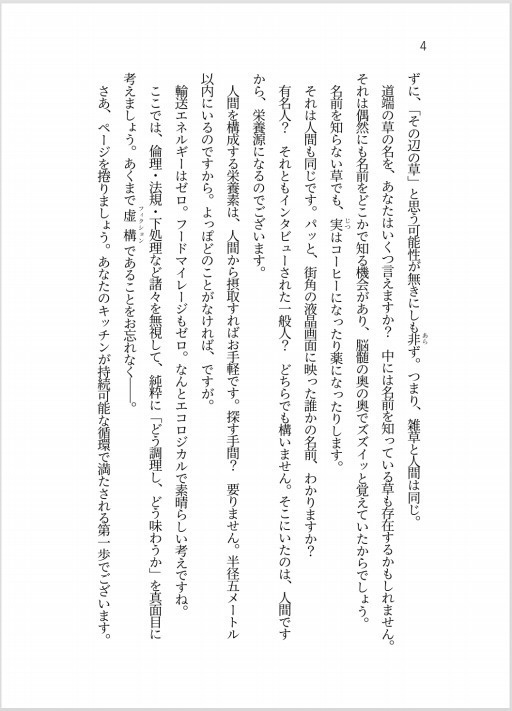 4
ずに、「その辺の草」と思う可能性が無きにしも非ず。つまり、雑草と人間は同じ。
道端の草の名を、あなたはいくつ言えますか？　中には名前を知っている草も存在するかもしれません。
それは偶然にも名前をどこかで知る機会があり、脳髄の奥の奥でズズイッと覚えていたからでしょう。
名前を知らない草でも、実はコーヒーになったり薬になったりします。
それは人間も同じです。パッと、街角の液晶画面に映った誰かの名前、わかりますか？
有名人？　それともインタビューされた一般人？　どちらでも構いません。そこにいたのは、人間です
から、栄養源になるのでございます。
人間を構成する栄養素は、人間から摂取すればお手軽です。探す手間？　要りません。半径五メートル
以内にいるのですから。よっぽどのことがなければ、ですが。
輸送エネルギーはゼロ。フードマイレージもゼロ。なんとエコロジカルで素晴らしい考えですね。
ここでは、倫理・法規・下処理など諸々を無視して、純粋に「どう調理し、どう味わうか」を真面目に
考えましょう。あくまで虚構であることをお忘れなく――。
さあ、ページを捲りましょう。あなたのキッチンが持続可能な循環で満たされる第一歩でございます。
あら
じつ
フィクション